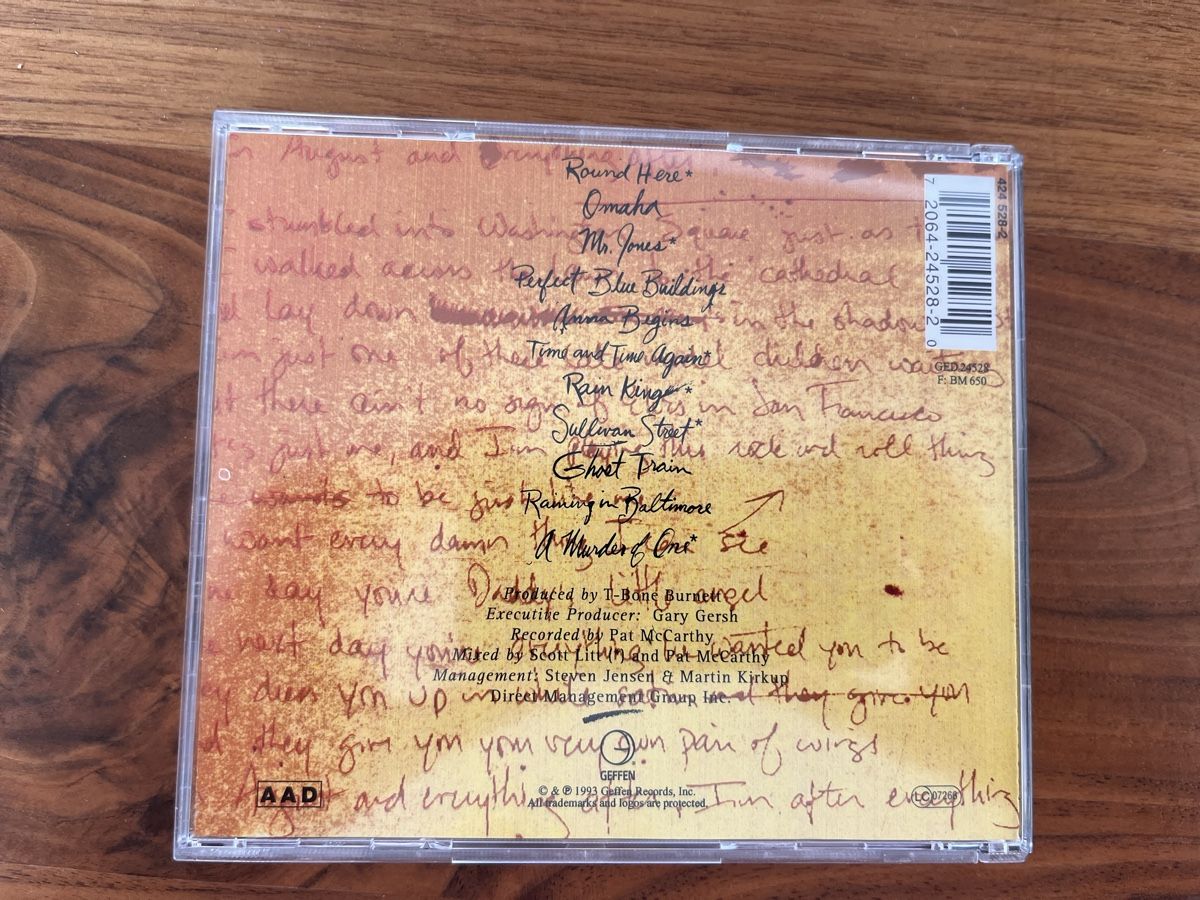 Round Here*
Omaha
Mr. Jones*
Perfect Blue Buildings
Anna Begins
Time and Time Again*
Rain King*
Sullivan Street*
Ghost Train
Raining in Baltimore
A Murder of One*
Produced by T-Bone Burnett
Executive Producer: Gary Gersh
Recorded by Pat McCarthy
Mixed by Scott Litt (*) and Pat McCarthy
Management: Steven Jensen & Martin Kirkup
Direct Management Group Inc.
GEFFEN
© & ℗ 1993 Geffen Records, Inc.
All trademarks and logos are protected.
AAD
LC 07266
424 528-2
7 20642-4528-2 0
GED 24528
F: BM 650
August and everything
stumbled into Washington Square just as
walked across the cathedral
lay down in the shadow
just one of children
there ain't no sign of in San Francisco
just me, and I'm this rock and roll thing
wants to be
want every damn see
day you're Daddy's little angel
next day you're everything wanted you to be
dress you up in and they give you
they give you your very own pair of wings
and everything after I'm after everything